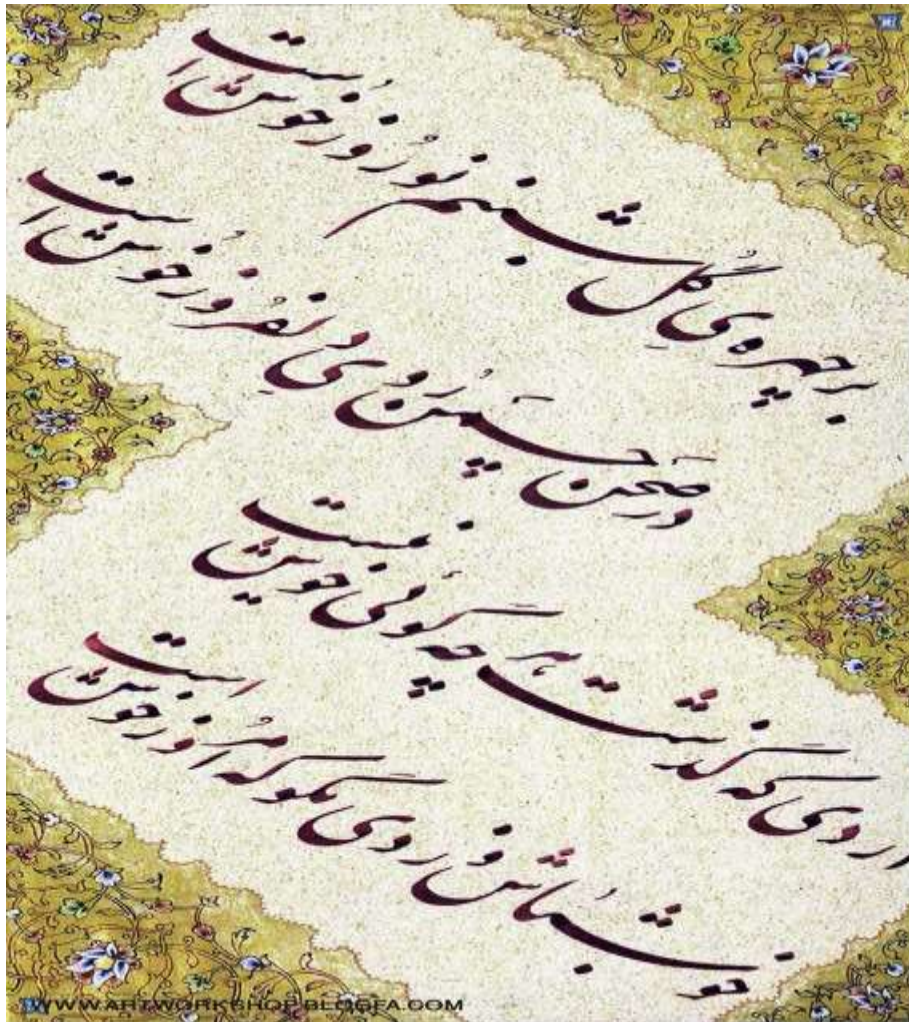 بر چهره ی گل شبنم نوروز خوش است
در صحن چمن روی دل افروز خوش است
از دی که گذشت هر چه گوئی خوش نیست
خوش باش و ز دی مگو که امروز خوش است
WWW.ARTWORKSHOP.BLOGFA.COM